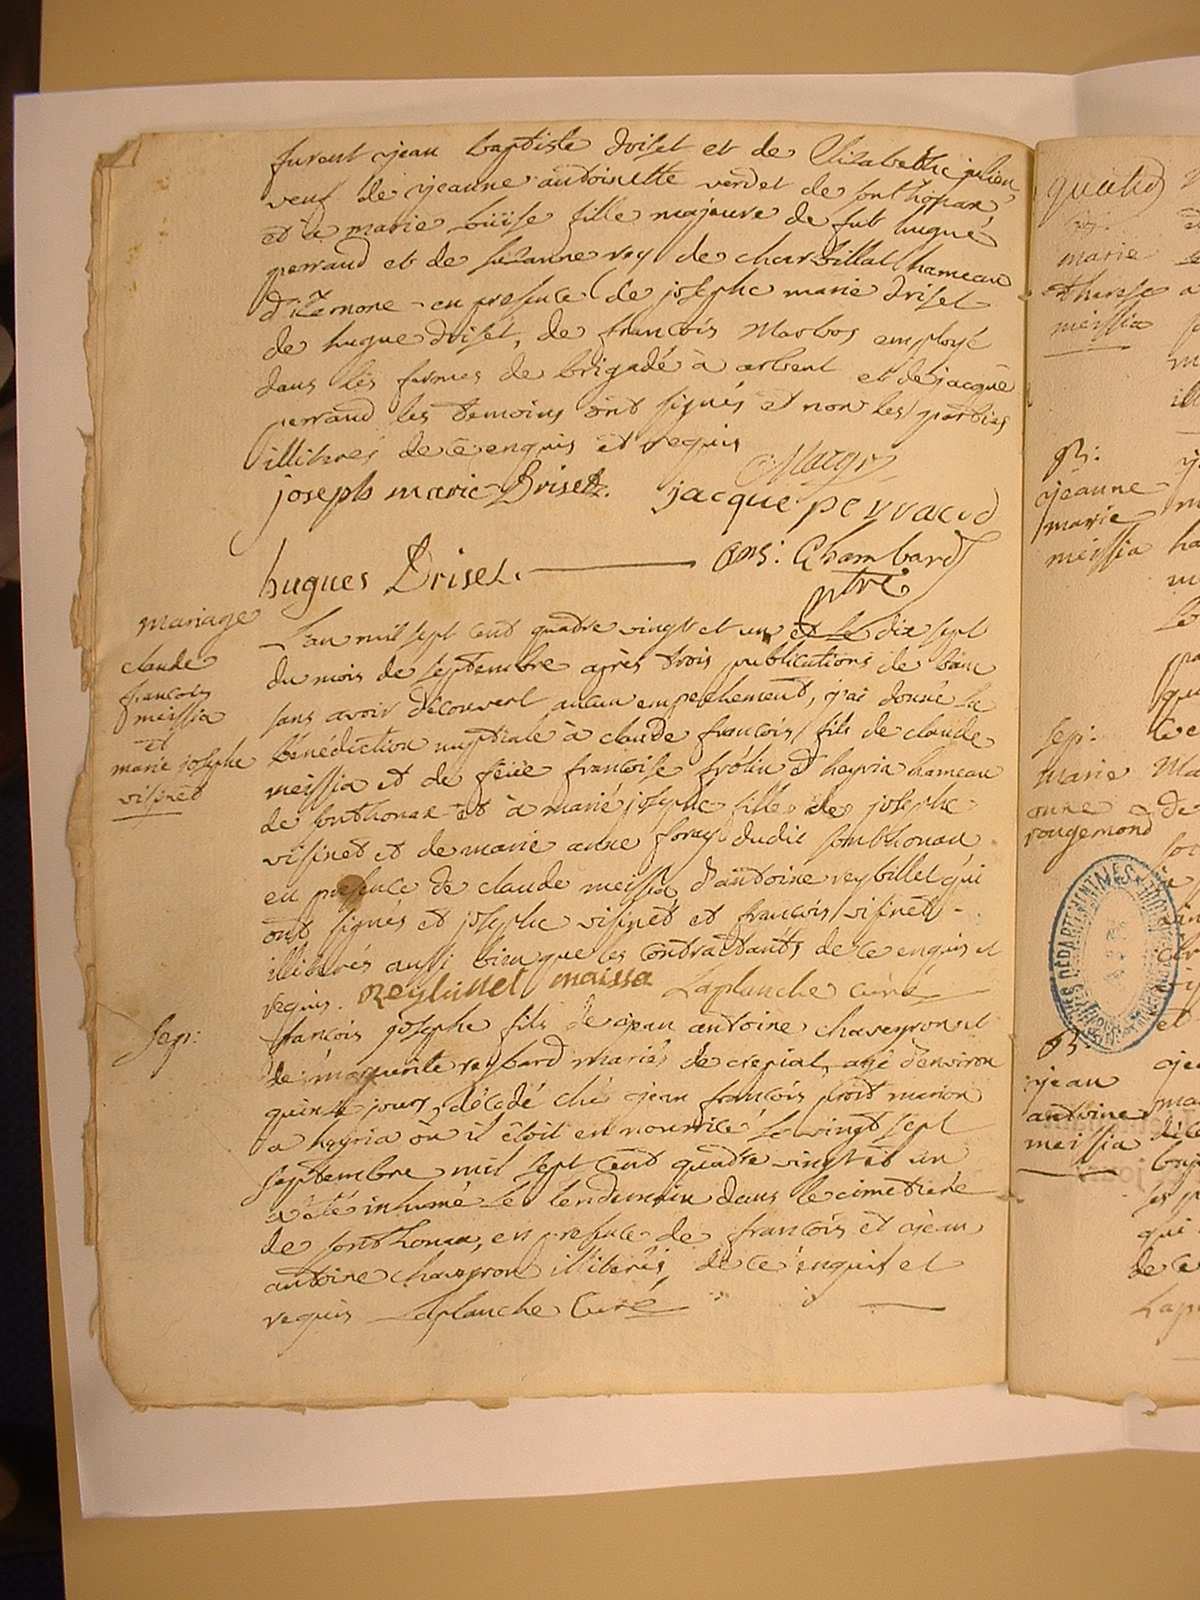 furent jean baptiste driset et de Elizabethe julien
veuf de jeanne antoinette verdet de sonthonax
et a marie loüise fille majeure de fut hugue
perraud et de suzanne rey de charbillat hameau
d'izernore en presence de josephe marie driset
de hugue driset, de françois Marbos employé
dans les fermes de brigade à arbent et de jacque
perraud les temoins ont signés et non les parties
illiterés de ce enquis et requis
joseph marie Driset. jacque perraud
hugues Driset. Chambard
ptre
mariage
claude
françois
meissia
et
marie josephe
visinet
L'an mil sept cent quatre vingt et un et le dix sept
du mois de septembre après trois publications de banc
sans avoir découvert aucun empechement, j'ai donné la
bénédiction nuptiale à claude françois fils de claude
meissia et de feüe françoise frólin d'heyria hameau
de sonthonax et à marie josephe fille de josephe
visinet et de marie anne foray dudit sonthonax
en presence de claude meissia d'antoine reybillet qui
ont signés et josephe visinet et françois visinet
illiterés aussi bien que les contractants de ce enquis et
requis. Reybillet maissa Laplanche curé
sep:
françois josephe fils de jean antoine chaveyron et
de marguerite reybard mariés de crepiat, agé d'environ
quinze jours, décédé ché jean françois proit marion
a heyria ou il étoit en nourrice le vingt sept
septembre mil sept cent quatre vingt et un
a été inhumé le lendemain dans le cimetiere
de sonthonax, en presence de françois et jean
antoine chaveyron illiterés de ce enquis et
requis Laplanche Curé
quatre
marie
therese
meissia
B:
jeanne
marie
meissia
sep:
marie
anne
rougemond
B:
jean
antoine
meissia